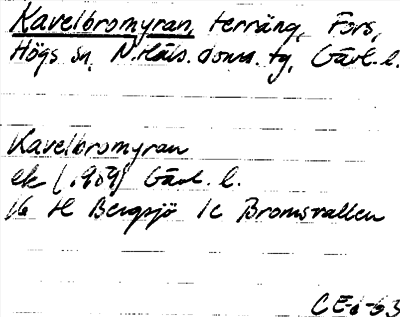 Kavelbromyran, terräng, Fors,
Högs sn, N. Häls. doms. tg, Gävl. l.
Kavelbromyran
ek (1909) Gävl. l.
16 H Bergsjö 1c Bromsvallen
CE-63